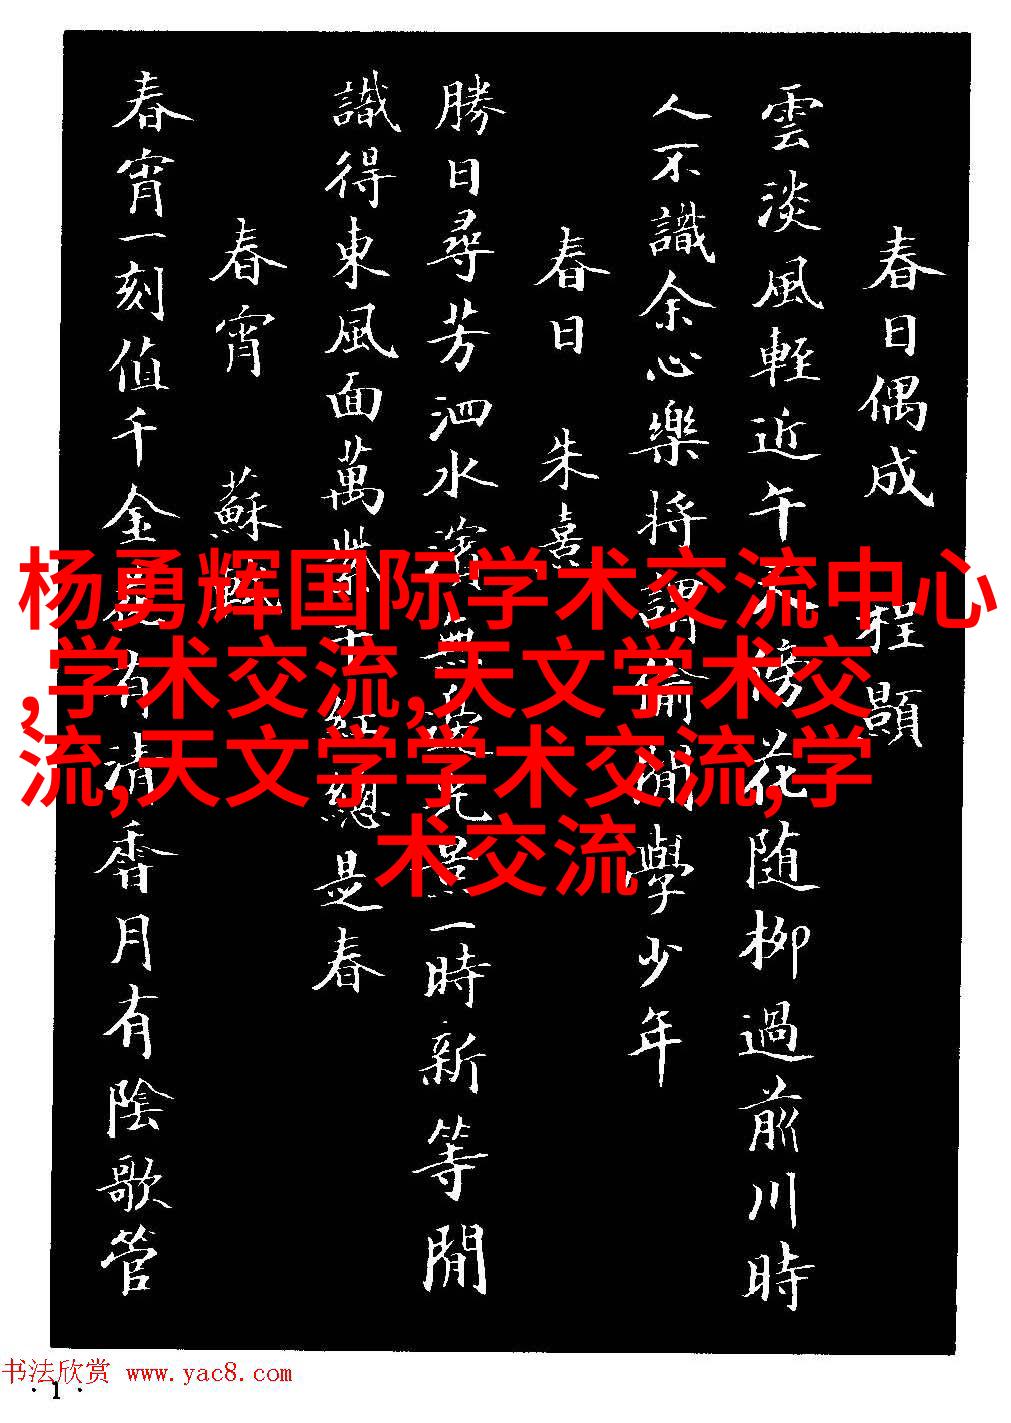 春日偶成 程顥
雲淡風輊近午天傍花随柳過前川時
人不識余心樂将謂偷閒學少年
春日 朱熹
勝日尋芳泗水濱無邊光景一時新等閒
識得東風面萬紫千紅總是春
春宵 蘇軾
春宵一刻值千金花有清香月有陰歌管
杨勇辉国际学术交流中心
,学术交流,天文学术交
流,天文学学术交流,学
术交流
书法欣赏 www.yac8.com
·1·